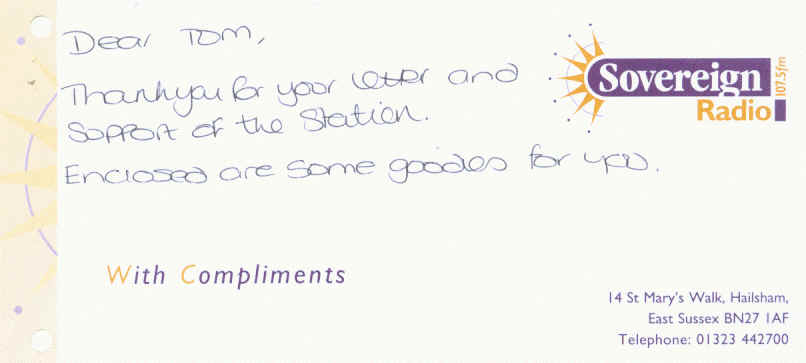 Dear Tom,
Thankyou for your letter and
Support of the Station.
Enclosed are some goodies for you.
Sovereign
Radio
107.5fm
With Compliments
14 St Mary's Walk, Hailsham,
East Sussex BN27 1AF
Telephone: 01323 442700